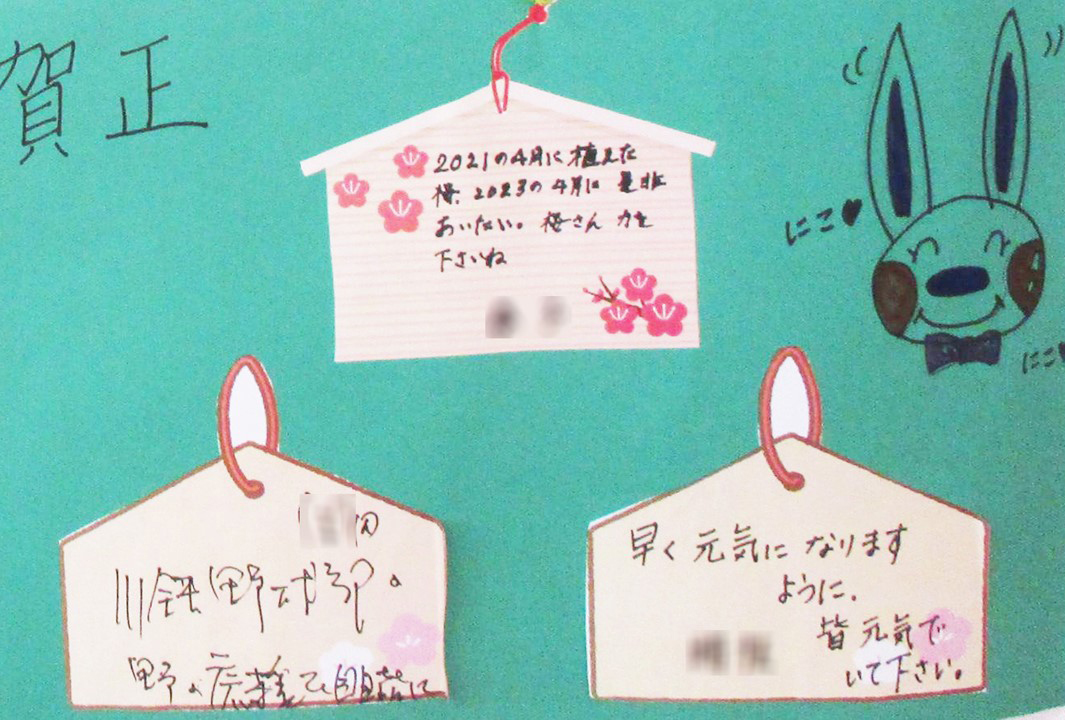 賀正
2021の4月に植えた
桜、2023の4月に是非
あいたい。桜さん力を
下さいね
にこ♥
にこ♥
川鉄野球部。
早く元気になります
ように。
皆元気で
いて下さい。